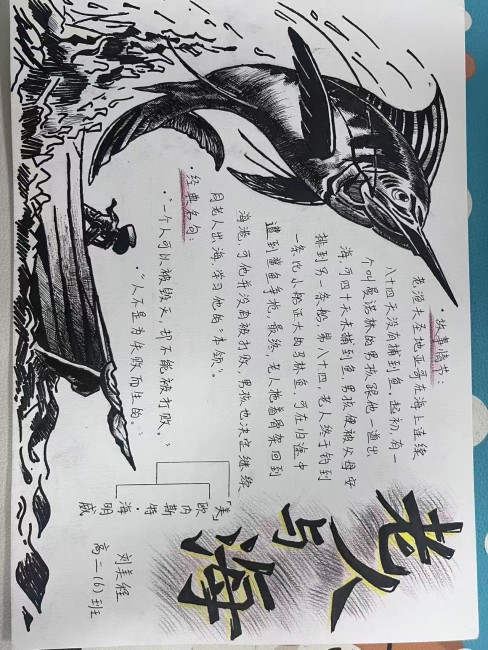 老人
与海
「美」欧内斯特·海明威
刘美程
高二(6)班
·故事情节：
老渔夫圣地亚哥在海上连续
八十四天没有捕到鱼。起初，有一
个叫曼诺林的男孩跟他一道出
海，可四十天未捕到鱼，男孩便被父母安
排到另一条船，第八十四，老人终于钓到
一条比小船还大的马林鱼，可在归途中
遭到鲨鱼争抢，最终，老人拖着骨架回到
海港，可他并没有被打败，男孩也决定继续
同老人出海，学习他的“本领”。
·经典名句：
·“一个人可以被毁灭，却不能被打败。”
·“人不是为失败而生的。”